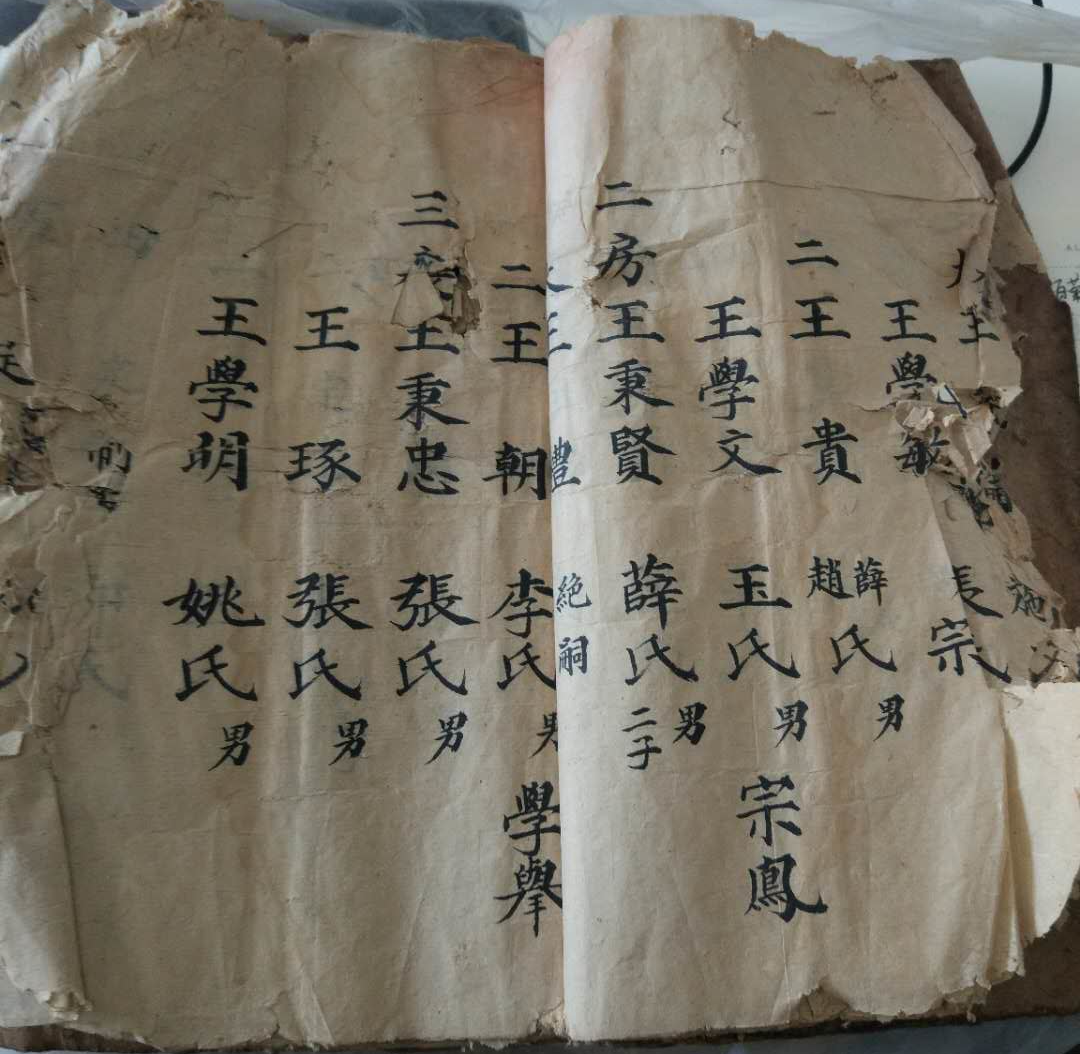 王
施
王學敏
長宗
二王貴
薛趙氏男
王學文
玉氏男宗鳳
二房王秉賢
薛氏男二子
王豊
絶嗣
二王朝
李氏男學舉
三房王秉忠
張氏男
王琢
張氏男
王學明
姚氏男